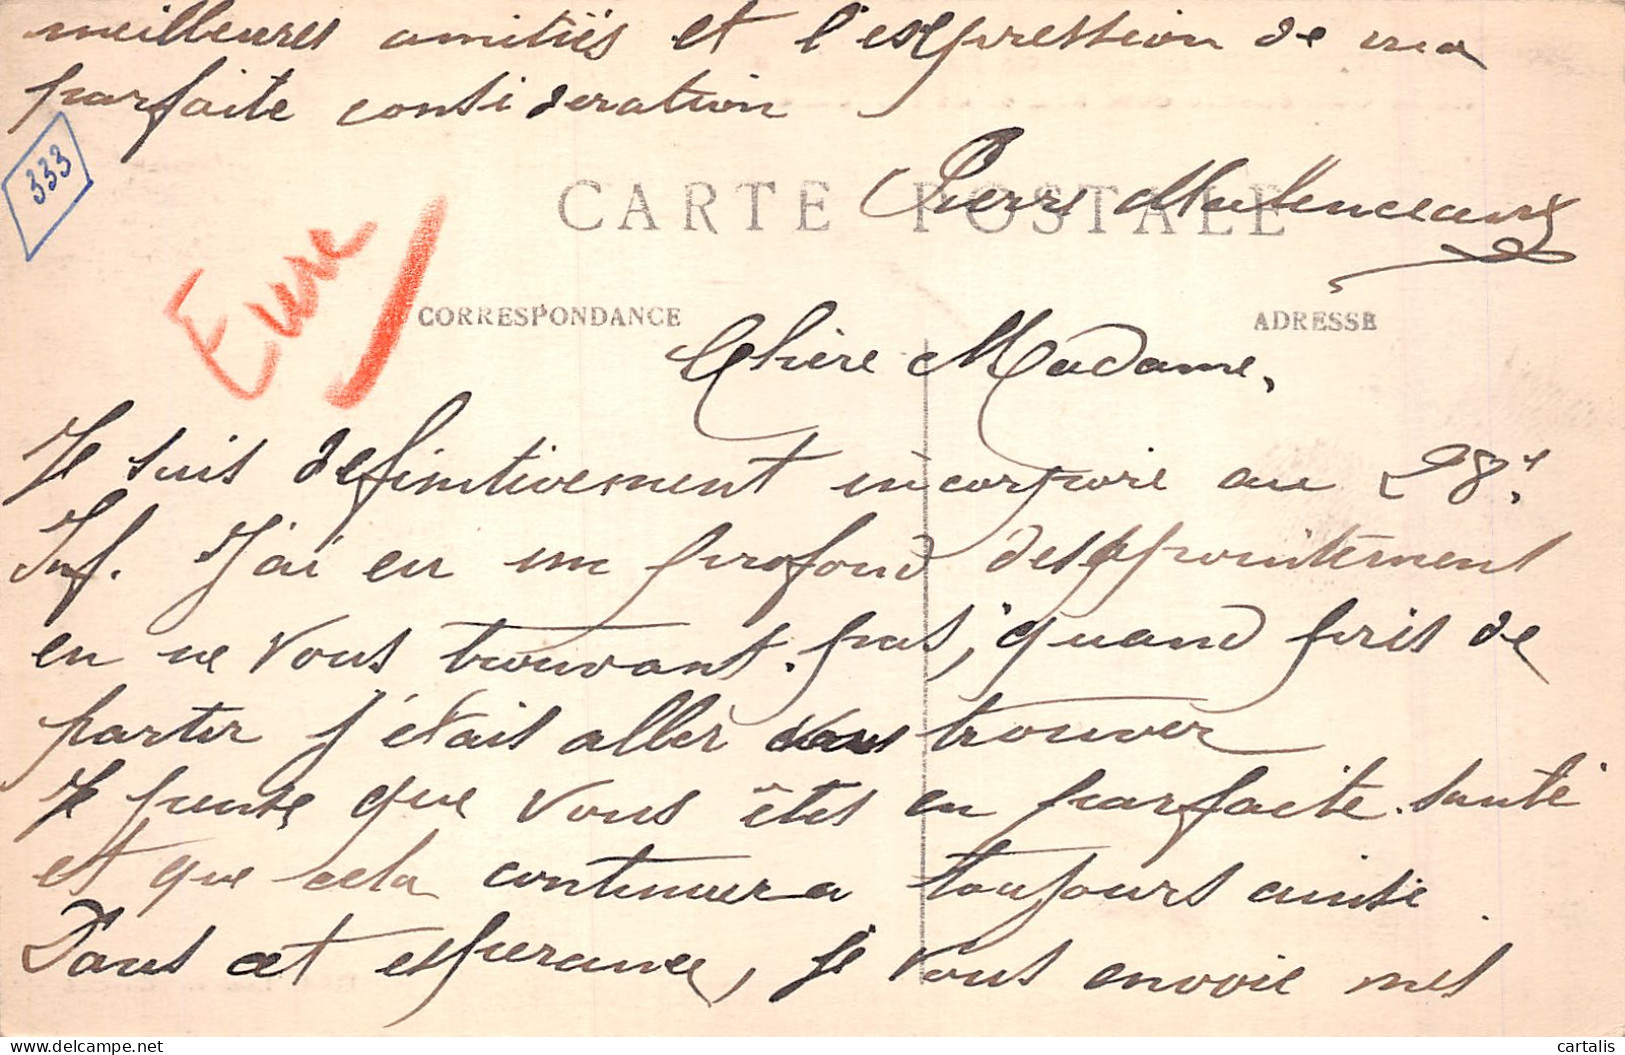 meilleures amitiés et l'expression de ma
parfaite consideration
333
CARTE POSTALE
Pierre
Eure
CORRESPONDANCE
ADRESSE
Chère Madame,
Je suis definitivement incorporé au 28e
Inf. J'ai eu un profond desappointement
en ne vous trouvant pas, quand pris de
partir j'étais aller vous trouver
Je pense que vous êtes en parfaite santé
et que cela continuera toujours ainsi
Dans cet esperance, je vous envoie mes
cartalis
delcampe.net